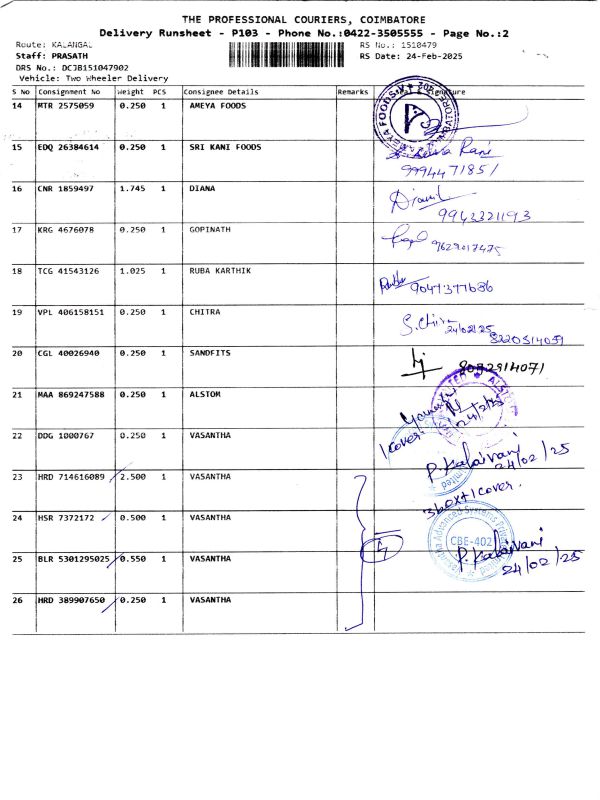 THE PROFESSIONAL COURIERS, COIMBATORE
Delivery Runsheet - P103 - Phone No.:0422-3505555 - Page No.:2
Route: KALANGAL RS No.: 1510479
Staff: PRASATH RS Date: 24-Feb-2025
DRS No.: DCJB151047902
Vehicle: Two Wheeler Delivery
S No Consignment No Weight PCS Consignee Details Remarks Signature
14 MTR 2575059 0.250 1 AMEYA FOODS
15 EDQ 26384614 0.250 1 SRI KANI FOODS Rani
9994471851
16 CNR 1859497 1.745 1 DIANA
9943221193
17 KRG 4676078 0.250 1 GOPINATH 9629017475
18 TCG 41543126 1.025 1 RUBA KARTHIK
19 VPL 406158151 0.250 1 CHITRA 24/02/25
8220514059
20 CGL 40026940 0.250 1 SANDFITS 8072914071
21 MAA 869247588 0.250 1 ALSTOM ALSTOM
24/2/25
1 cover.
22 DDG 1000767 0.250 1 VASANTHA P. Kalaivani
24/02/25
23 HRD 714616089 2.500 1 VASANTHA
3 box + 1 cover.
24 HSR 7372172 0.500 1 VASANTHA
CBE-402
25 BLR 5301295025 0.550 1 VASANTHA P. Kalaivani
24/02/25
26 HRD 389907650 0.250 1 VASANTHA